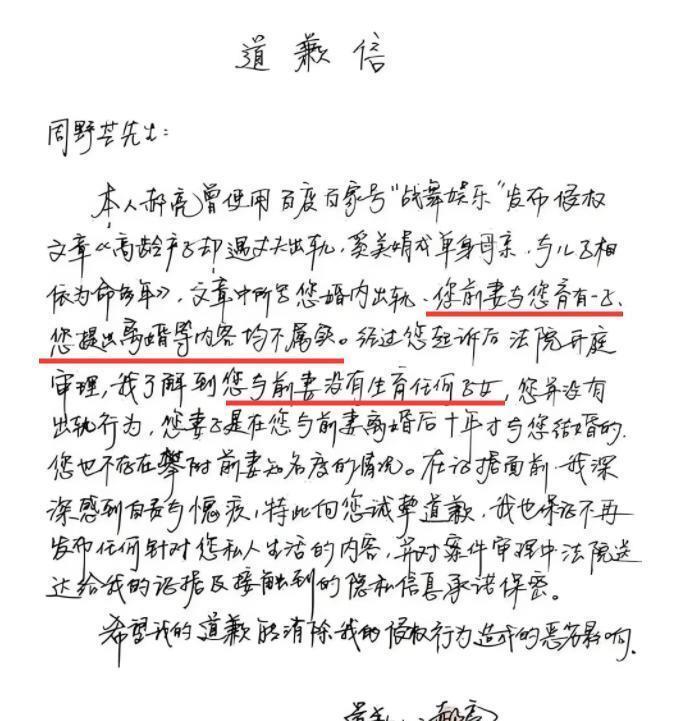 道歉信
周野芒先生:
本人郝亮曾使用百度百家号“战舞娱乐”发布侵权
文章《高龄产子却遇丈夫出轨，奚美娟成单身母亲，与儿子相
依为命多年》，文章中所写您婚内出轨、您前妻与您育有一子、
您提出离婚等内容均不属实。经过您起诉后法院开庭
审理，我了解到您与前妻没有生育任何子女，您并没有
出轨行为，您妻子是在您与前妻离婚后十年才与您结婚的.
您也不存在攀附前妻知名度的情况。在证据面前，我深
深感到自责与愧疚，特此向您诚挚道歉，我也保证不再
发布任何针对您私人生活的内容，并对案件审理中法院送
达给我的证据及接触到的隐私信息承诺保密。
希望我的道歉能消除我的侵权行为造成的恶劣影响.
郝亮